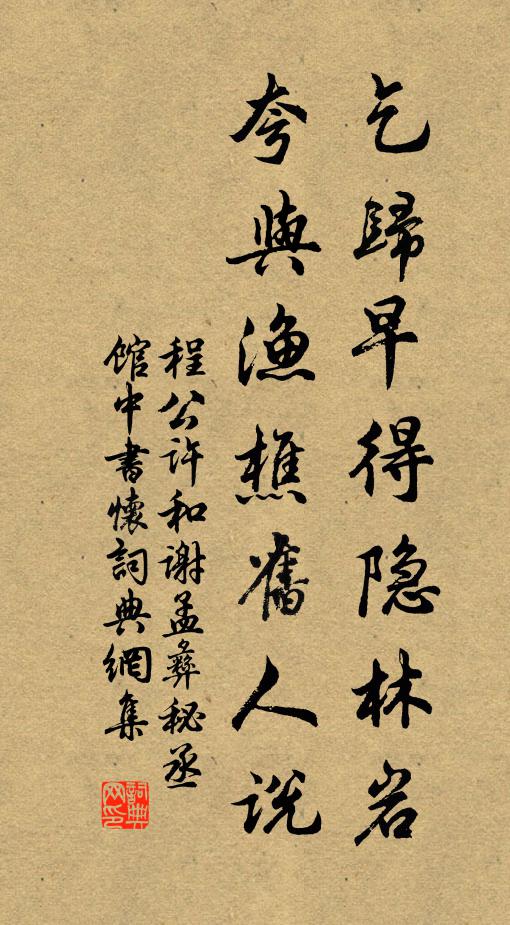 乞歸早得隐林岩
夸與漁樵舊人説
程公许和谢孟彝秘丞
馆中書懷詞典網集
詞典网印